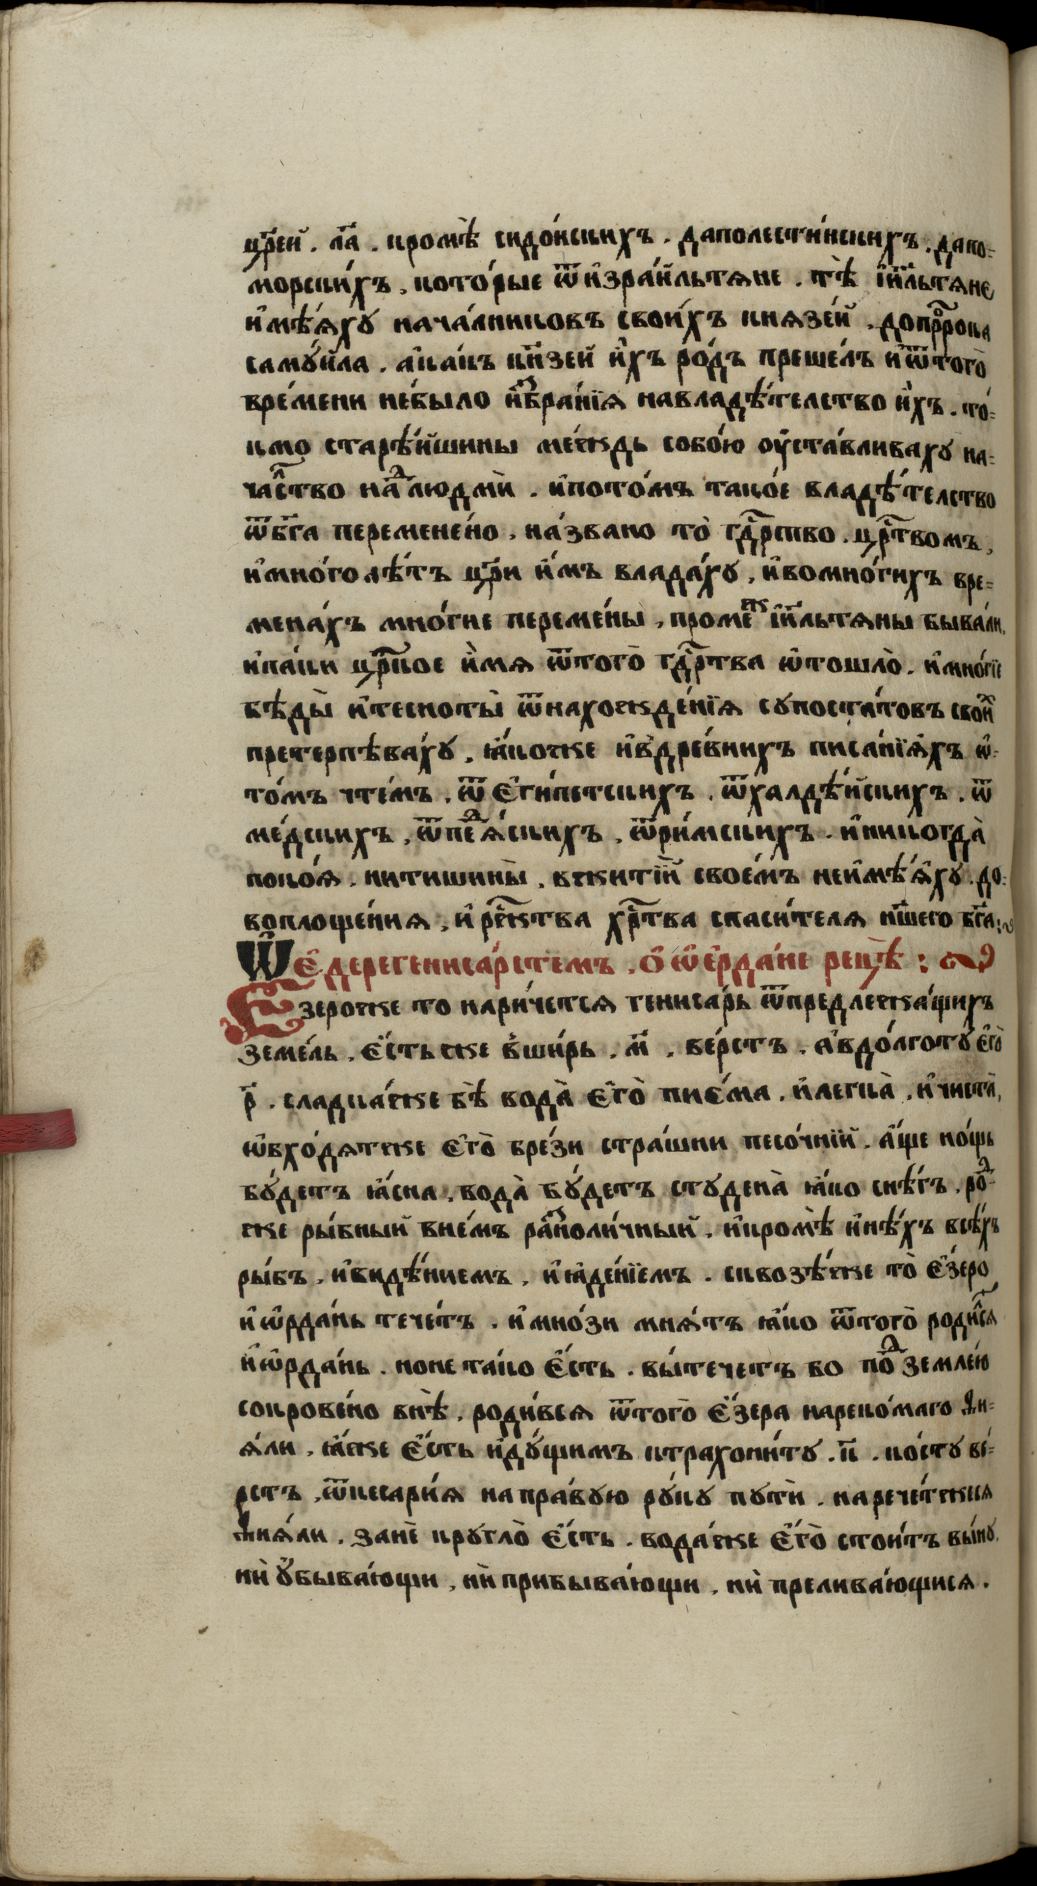 цр҃ей . ла҃ . кромѣ̀ сидо́нскихъ . даполести́нскихъ . дако-
морски́хъ , кото́рые ѿи҆зраи́льтяне . тѣ̀ і҆и҃льтяне
и҆мѣ́ѧху нача́лниковъ свои́хъ кнѧзе́й . допрⷪ҇рока
саму́ила . а҆ка́къ кн҃зей и҆́хъ ро́дъ преше́лъ и҆ѿтого̀
вре́мени не́было и҆ꙁбра́нїѧ навладѣ́телство и҆́хъ . то́-
кмо старѣ́йшины ме́ждь собо́ю оу҆ста́вливаху на-
ча́лⷭ҇тво наⷣлюдмѝ . и҆пото́мъ тако́е владѣ́телство
ѿбг҃а переменено , на́звано то̀ гдⷭ҇рство . црⷭ҇твомъ ,
и҆мно́голѣтъ цр҃и и҆́мъ влада́ху , и҆вомно́гихъ вре-
мена́хъ мно́гие переме́ны , промеⷤ і҆и҃льтяны быва́ли ,
и҆па́ки црⷭ҇кое и҆́мѧ ѿтого̀ гдⷭ҇рства ѿтошло̀ . и҆мно́гїе
бѣды̀ и҆тесноты̀ ѿнахожде́нїѧ супоста́товъ свои́ⷯ
претерпѣва́ху , ꙗ҆́коже и҆вдре́внихъ писа́нїѧхъ ѡ҆-
то́мъ чте́мъ , ѿ є҆ги́петскихъ , ѿхалдѣ́йскихъ . ѿ
ме́дскихъ , ѿпеⷬ҇ѧ́скихъ , ѿри́мскихъ . и҆никогда̀
поко́ѧ . нитишины̀ , вжитїѝ свое́мъ неи҆мѣ́ѧху . до-
воплоще́ния , и҆ рⷤ҇ства хрⷭ҇тва спаси́телѧ нш҃его бг҃а :
Ѡ҆ є҆́дерегениса́рстемъ . ѻ҆́ ѡ҆е҆рда́не рецѣ̀ :
Є҆́зероже то нариче́тсѧ гениса́рь ѿпредлежа́щихъ
земе́ль , є҆́стьже вши́рь . м҃ . ве́рстъ . а҆вдо́лготу є҆го̀
р҃ . сладка́же бѣ̀ вода̀ є҆го̀ пие́ма . и҆легка̀ , и҆чиста̀ ,
ѡ҆вхо́дѧтже є҆го̀ бре́зи стра́шни песо́чнїй . а҆́ще но́щь
бу́детъ ꙗ҆́сна , вода̀ бу́детъ студена̀ ꙗ҆́ко снѣ́гъ . роⷣ-
же ры́бный вне́мъ раⷥноли́чный . и҆кромѣ̀ и҆нѣ́хъ всѣ́хъ
ры́бъ , и҆видѣ́нием҄ъ , и҆ꙗ҆де́нїемъ . сквозѣ́же то̀ є҆́зеро
и҆ ѡ҆рда́нь тече́тъ . и҆мно́зи мнѧ́тъ ꙗ҆́ко ѿтого̀ роди́сѧ
и҆ѡ҆рда́нь .ноне та́ко є҆́сть . вы́течетъ во поⷣ земле́ю
сокрове́но внѣ̀ , роди́всѧ ѿтого̀ є҆́зера нареко́маго Ѳи-
ѧ́ли , ꙗ҆́же є҆́сть и҆ду́щимъ ктрахони́ту . п҃ . ко́сту ве́-
рстъ , ѿкесари́ѧ на пра́вую ру́ку путѝ . нарече́тжесѧ
Ѳиѧ́ли . занѐ кругло̀ є҆́сть . вода́же є҆го̀ стои́тъ вы́ну ,
нѝ ѹ҆быва́ющи , нѝ прибыва́ющи , нѝ прелива́ющисѧ .